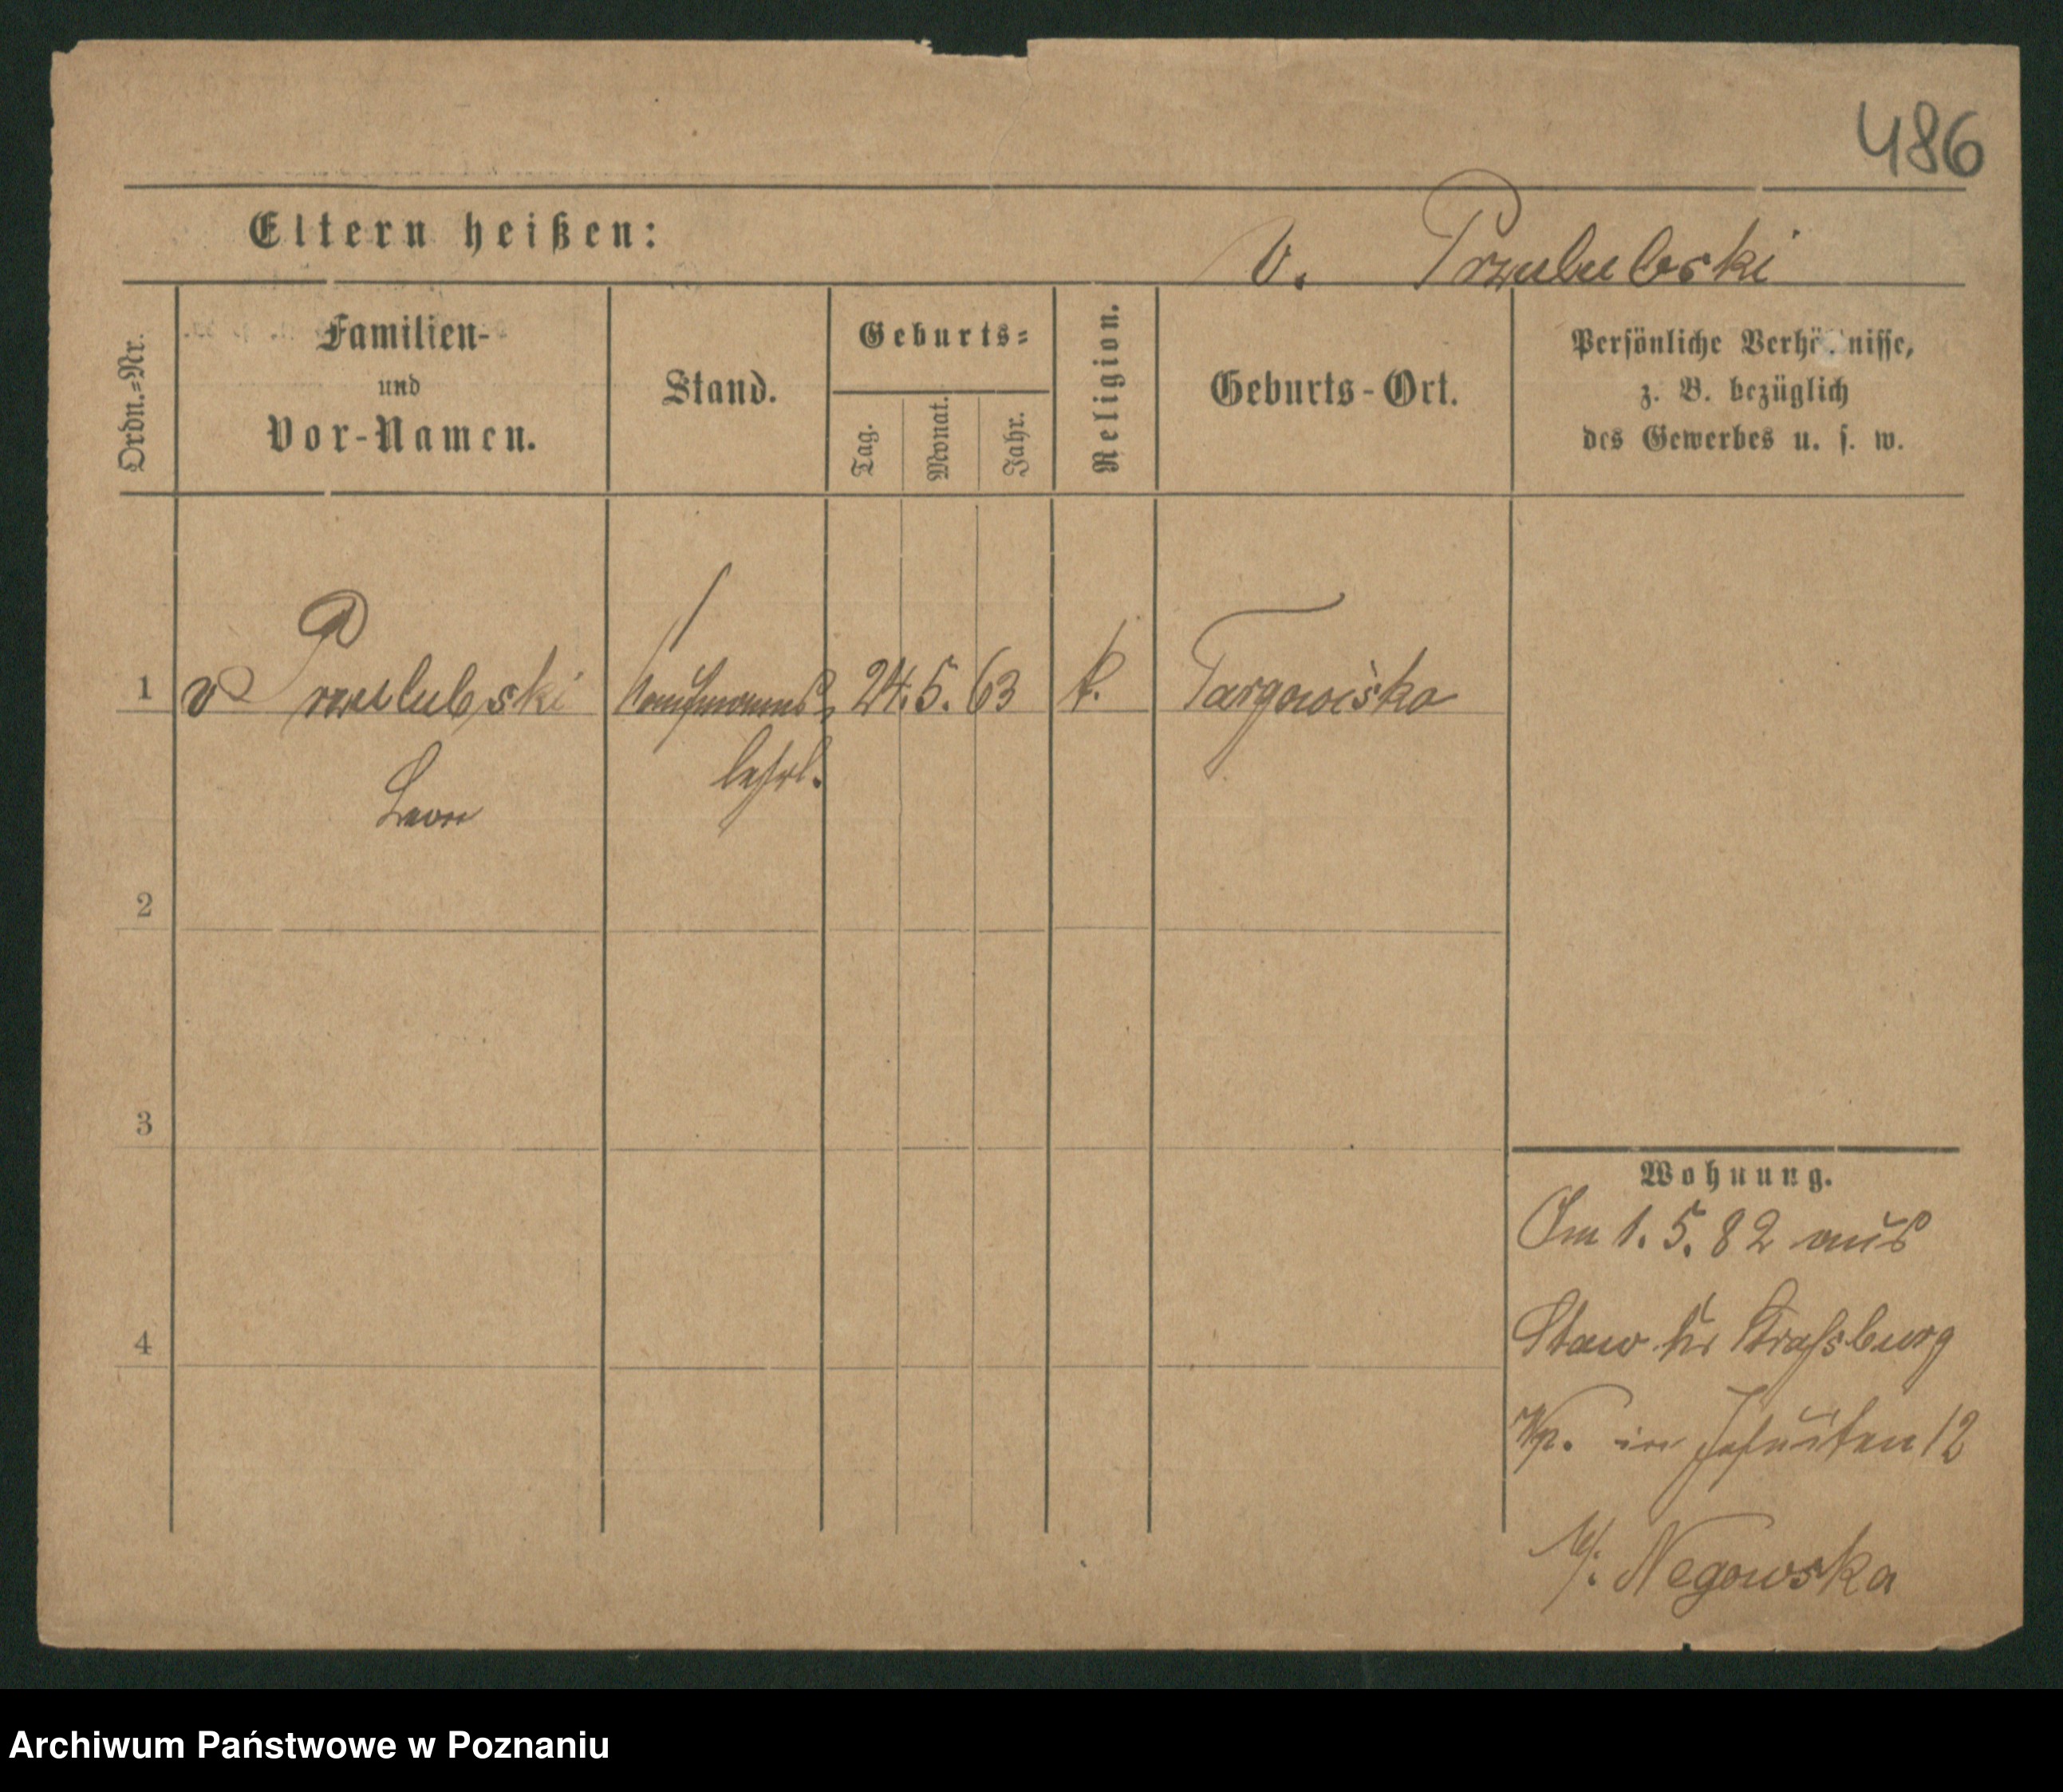 486
Eltern heißen: v. Przulubski
Ordn.=Nr.
Familien- und Vor-Namen.
Stand.
Geburts=
Tag.
Monat.
Jahr.
Religion.
Geburts-Ort.
Persönliche Verhältnisse,
z. B. bezüglich
des Gewerbes u. s. w.
1 v Przulubski Kaufmanns 24. 5. 63 k. Targowisko
Leon lehrl.
2
3
4
Wohnung.
Am 1. 5. 82 aus
Kr Straßburg
Wp. in Jesuiten 12
b/. Negowska
Archiwum Państwowe w Poznaniu